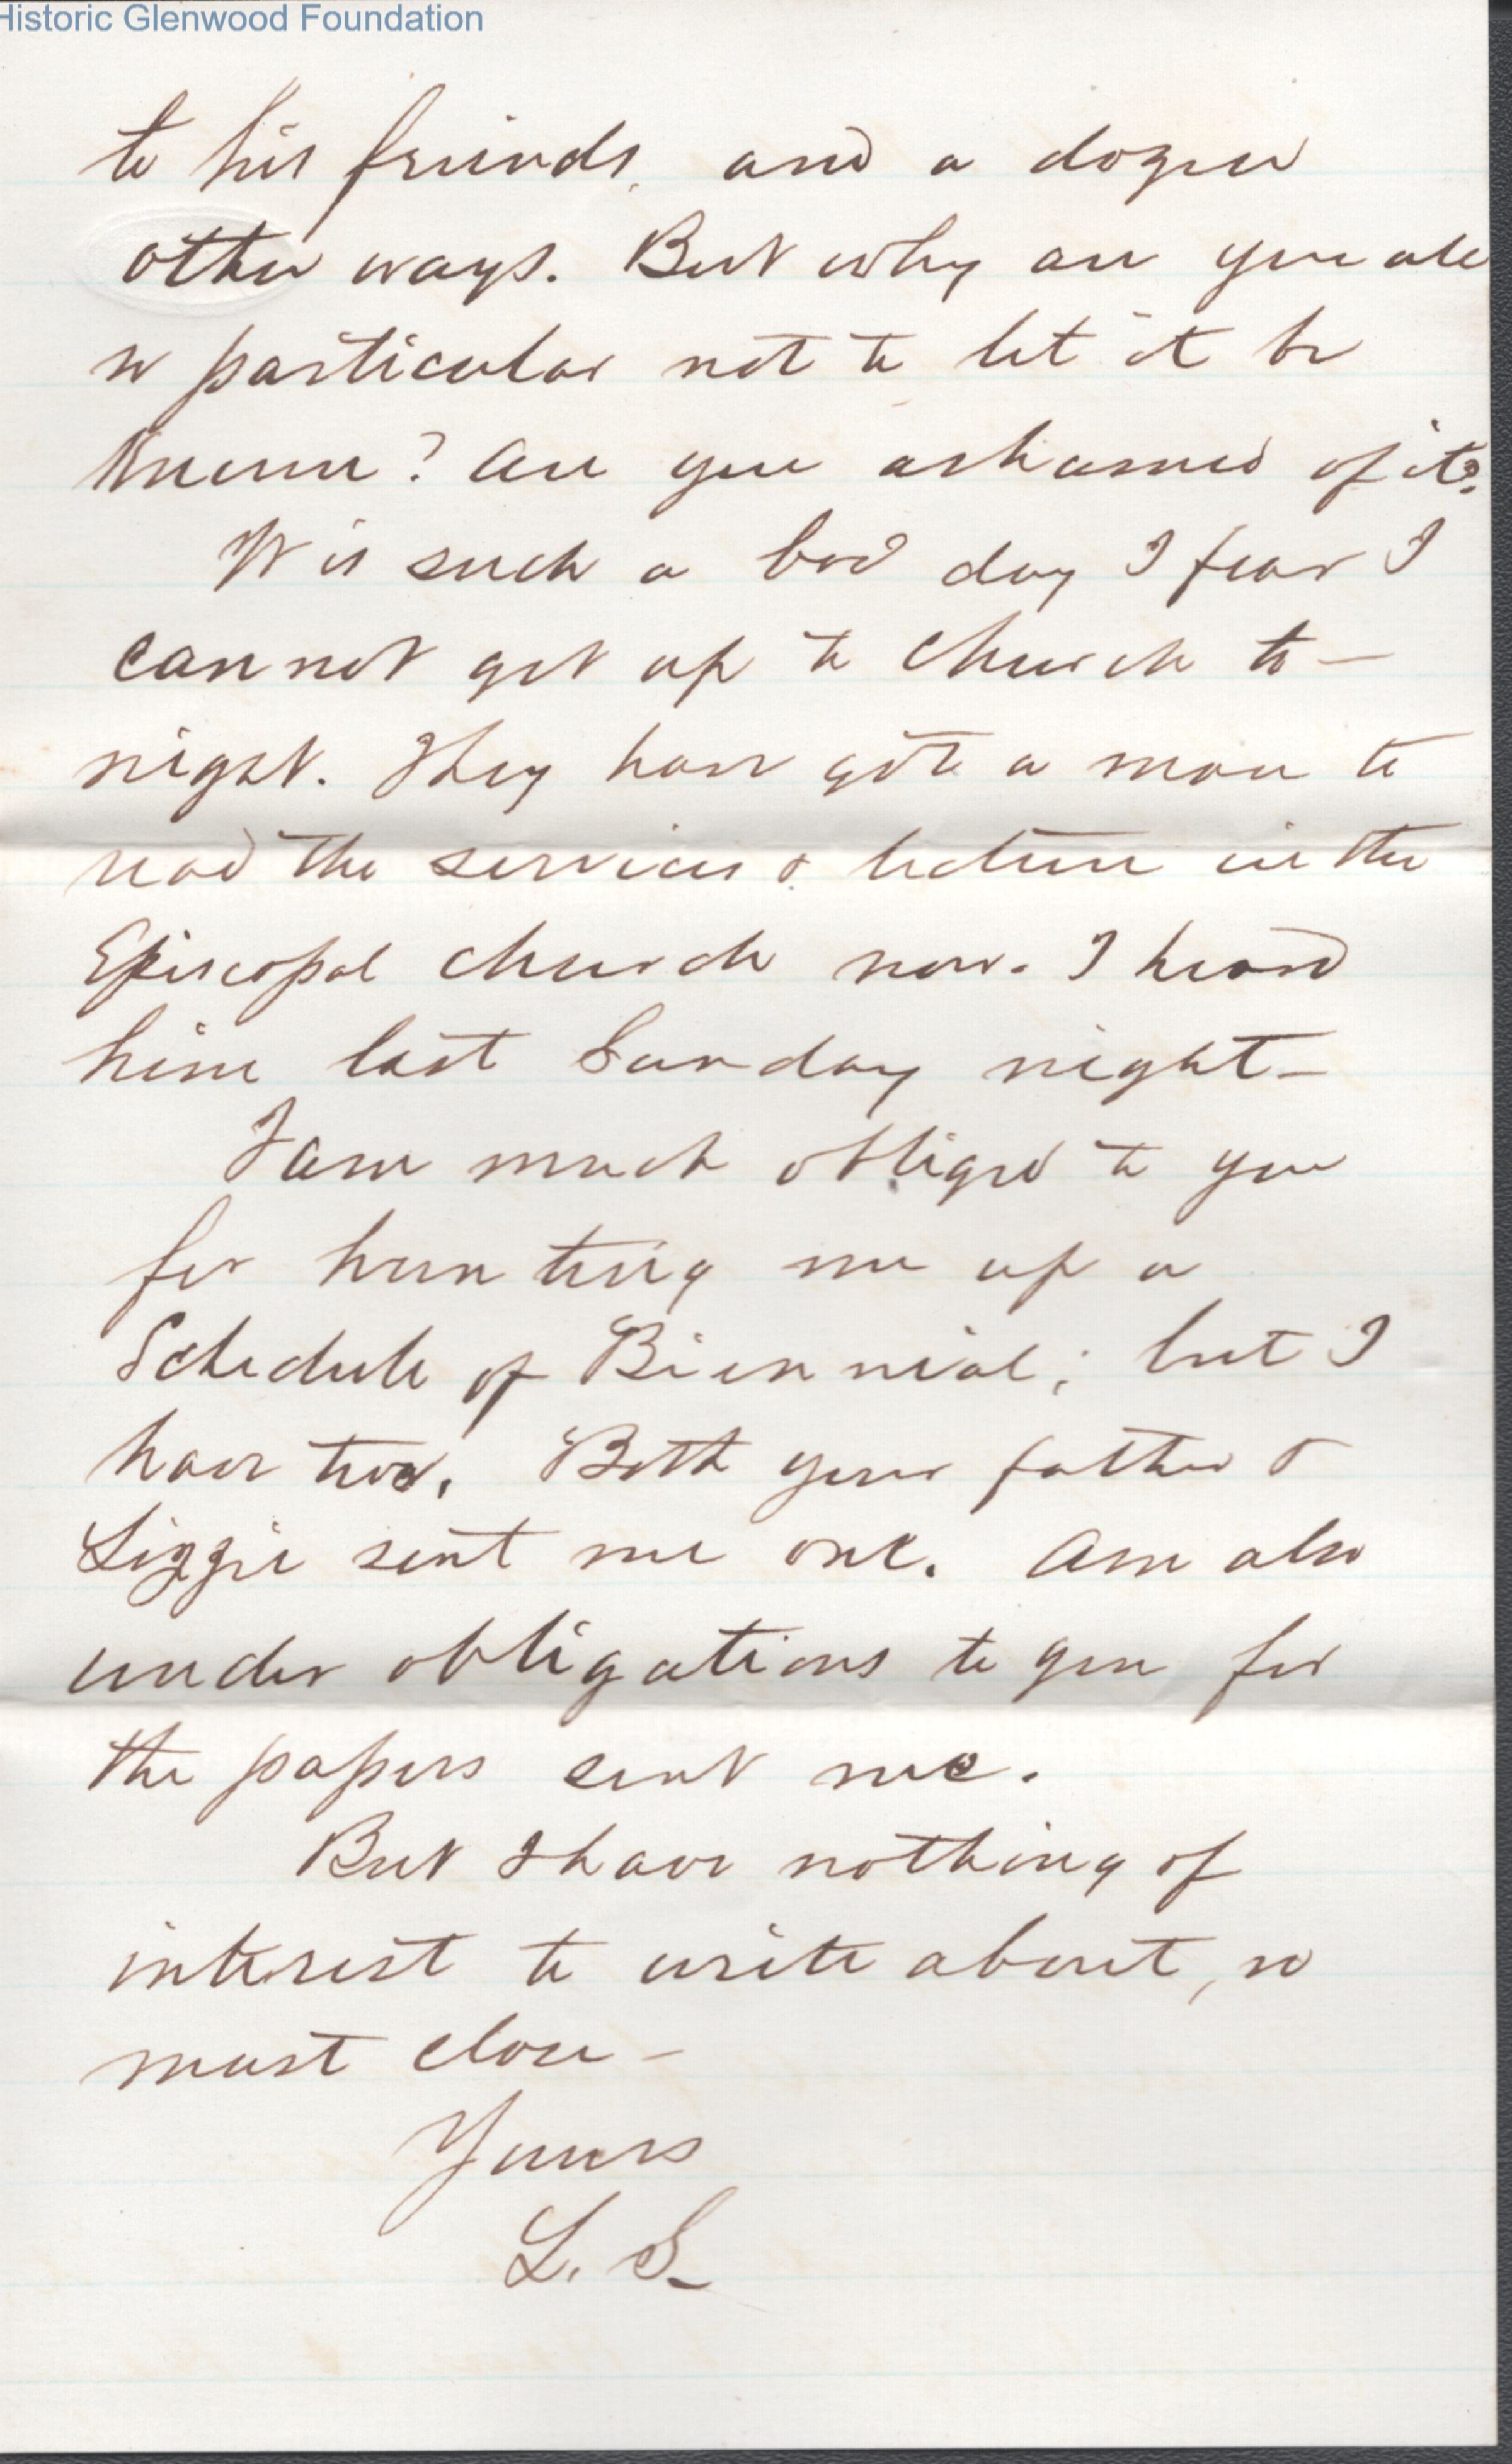 Historic Glenwood Foundation
to his friends, and a dozen
other ways. But why are you all
so particular not to let it be
known? Are you ashamed of it?
It is such a bad day I fear I
cannot get up to church to-
night. They have got a man to
read the services & lecture in the
Episcopal church now. I heard
him last Sunday night-
I am much obliged to you
for hunting me up a
Schedule of Biennial; but I
have two. Both your father &
Lizzie sent me one. Am also
under obligations to you for
the papers sent me.
But I have nothing of
interest to write about, so
must close-
Yours
L. S.